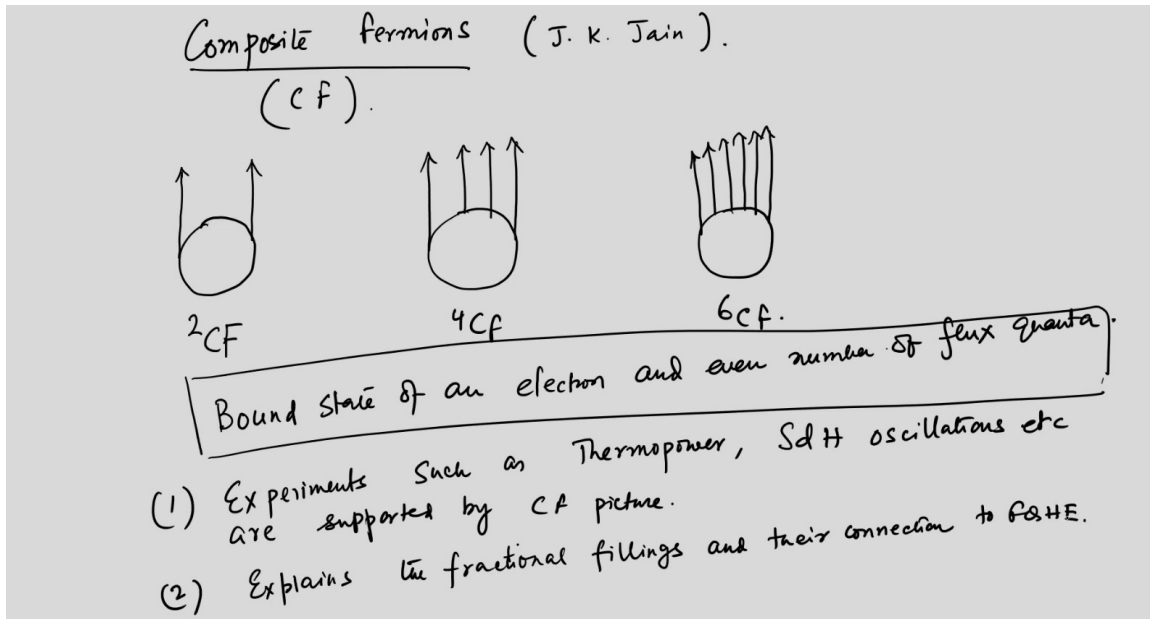 Composite fermions (J. K. Jain).
(CF).
²CF ⁴CF ⁶CF.
Bound state of an electron and even number of flux quanta.
(1) Experiments such as Thermopower, SdH oscillations etc
are supported by CF picture.
(2) Explains the fractional fillings and their connection to FQHE.